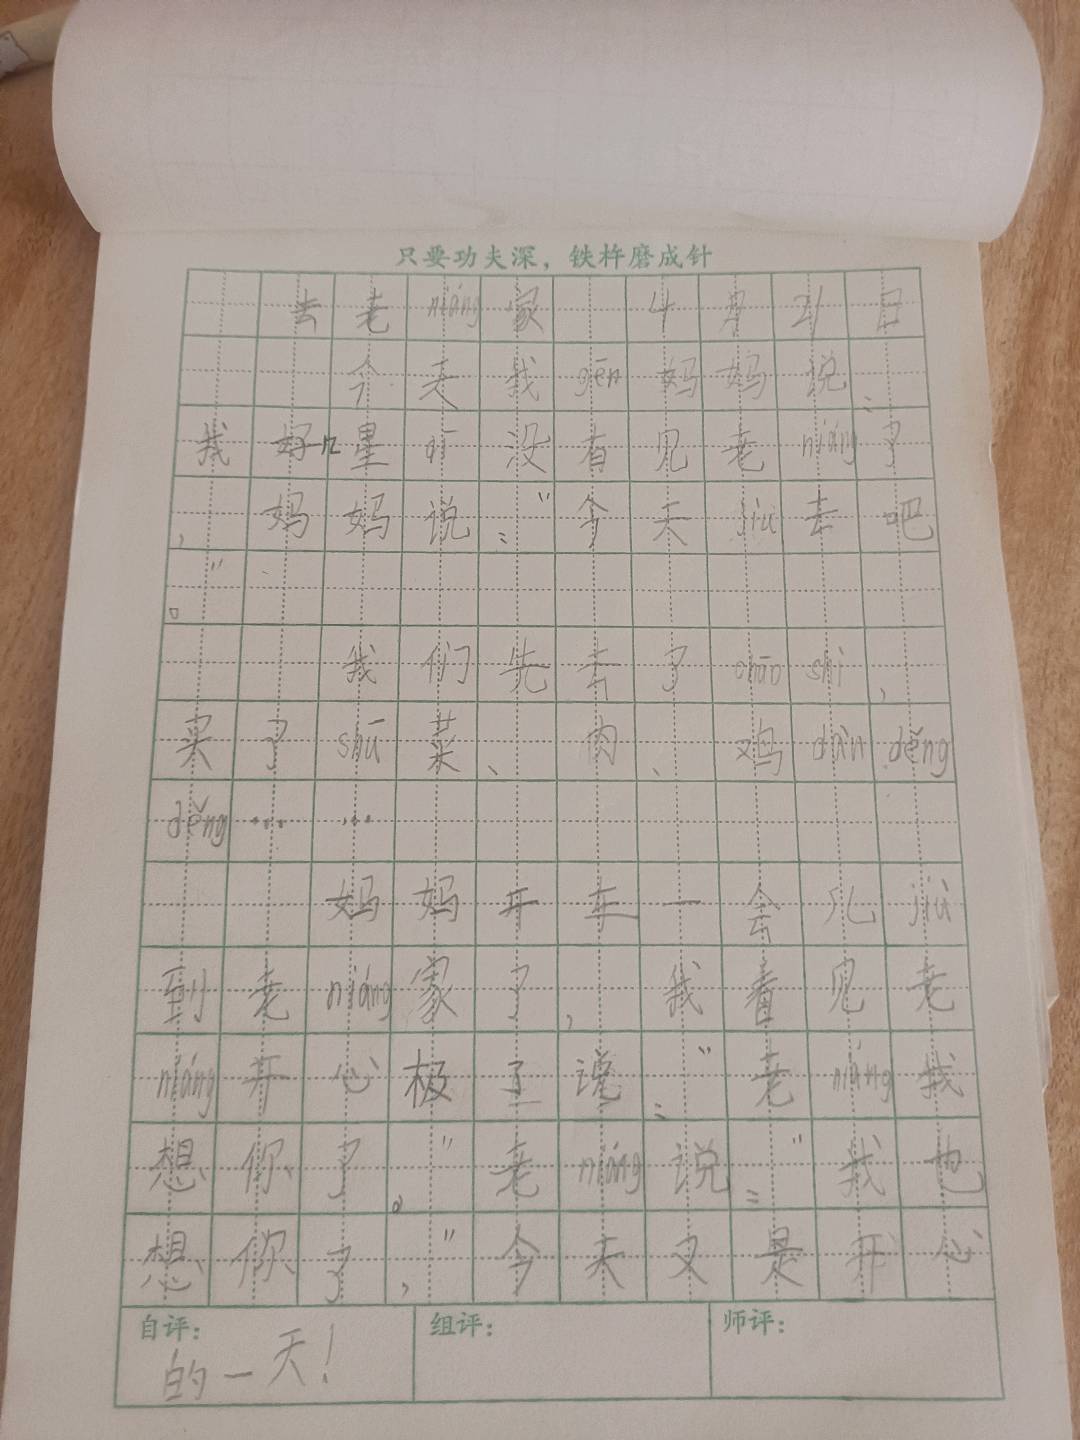 只要功夫深，铁杵磨成针
去老niáng家 4月21日
今天我gēn妈妈说：
我好几星qī没有见老niáng了
，妈妈说：“今天jiù去吧
。”
我们先去了chāo shì，
买了shū菜、肉、鸡dàn děng
děng……
妈妈开车一会儿jiù
到老niáng家了，我看见老
niáng开心极了说：“老niáng我
想你了。”老niáng说：“我也
想你了，”今天又是开心
自评： 组评： 师评：
的一天！